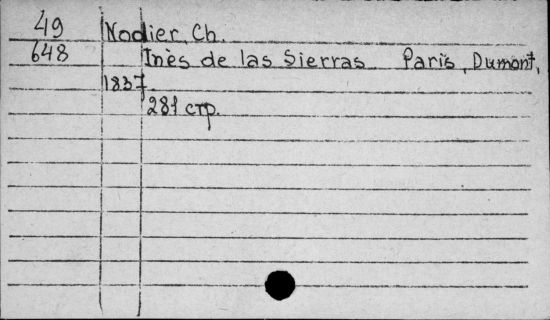 49 Nodier, Ch.
648 Inès de las Sierras Paris, Dumont,
1837.
281 стр.